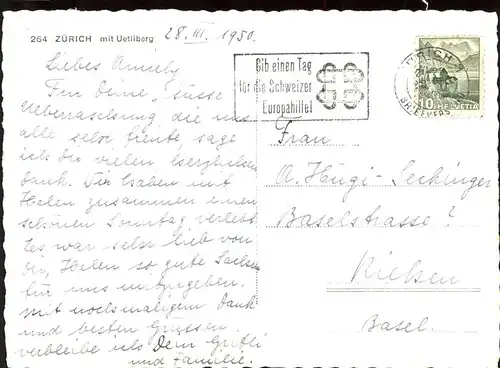 264 ZÜRICH mit Uetliberg
28. III. 1950.
Liebes Annely
Für Deine, süsse
Ueberraschung die uns
alle sehr freute, sage
ich Dir vielen herzlichen
Dank. Wir haben mit
Helen zusammen einen
schönen Sonntag verlebt.
Es war sehr lieb von
Dir, Helen so gute Sachen
für uns mitzugeben.
Mit nochmaligem Dank
und besten Grüssen
verbleibe ich Dein Gritli
und Familie.
Gib einen Tag
für die Schweizer
Europahilfe!
ZÜRICH
BRIEFVERS
10 HELVETIA
Frau
A. Hügi-Seckinger
Baselstrasse ?
Riehen
Basel.